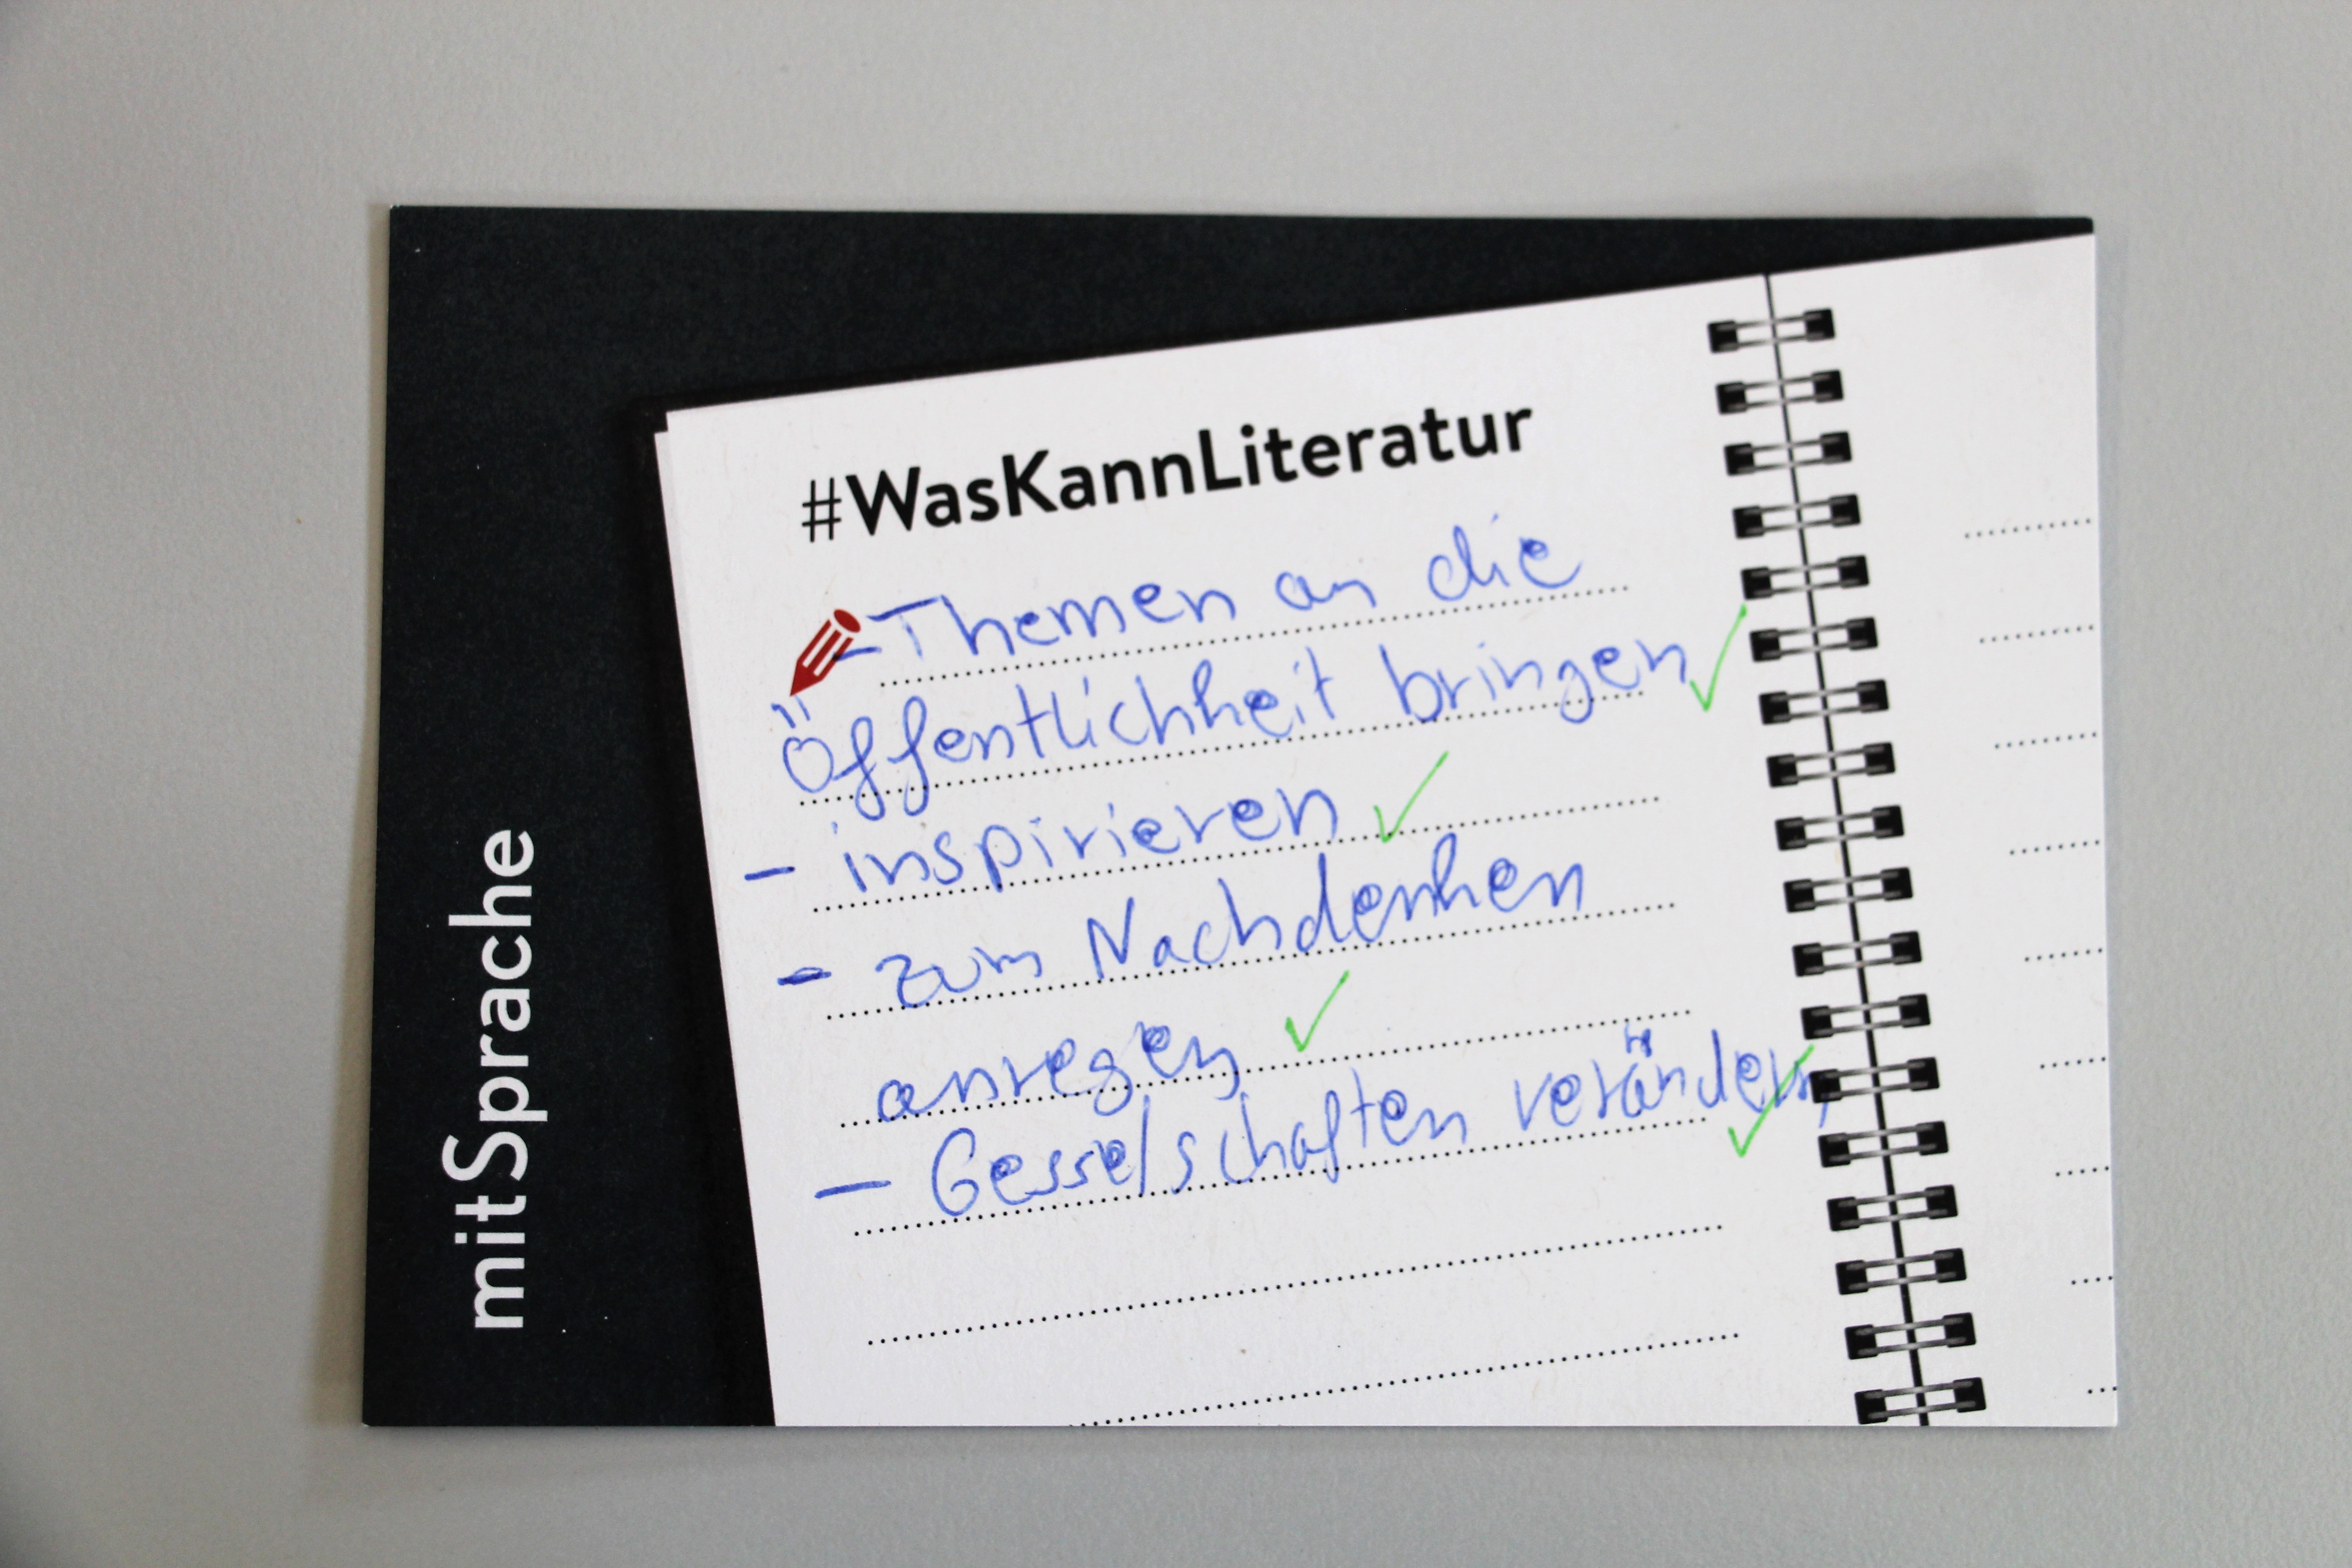 #WasKannLiteratur
- Themen an die
Öffentlichkeit bringen ✓
- inspirieren ✓
- zum Nachdenken
anregen ✓
- Gesselschaften verändern, ✓
mitSprache